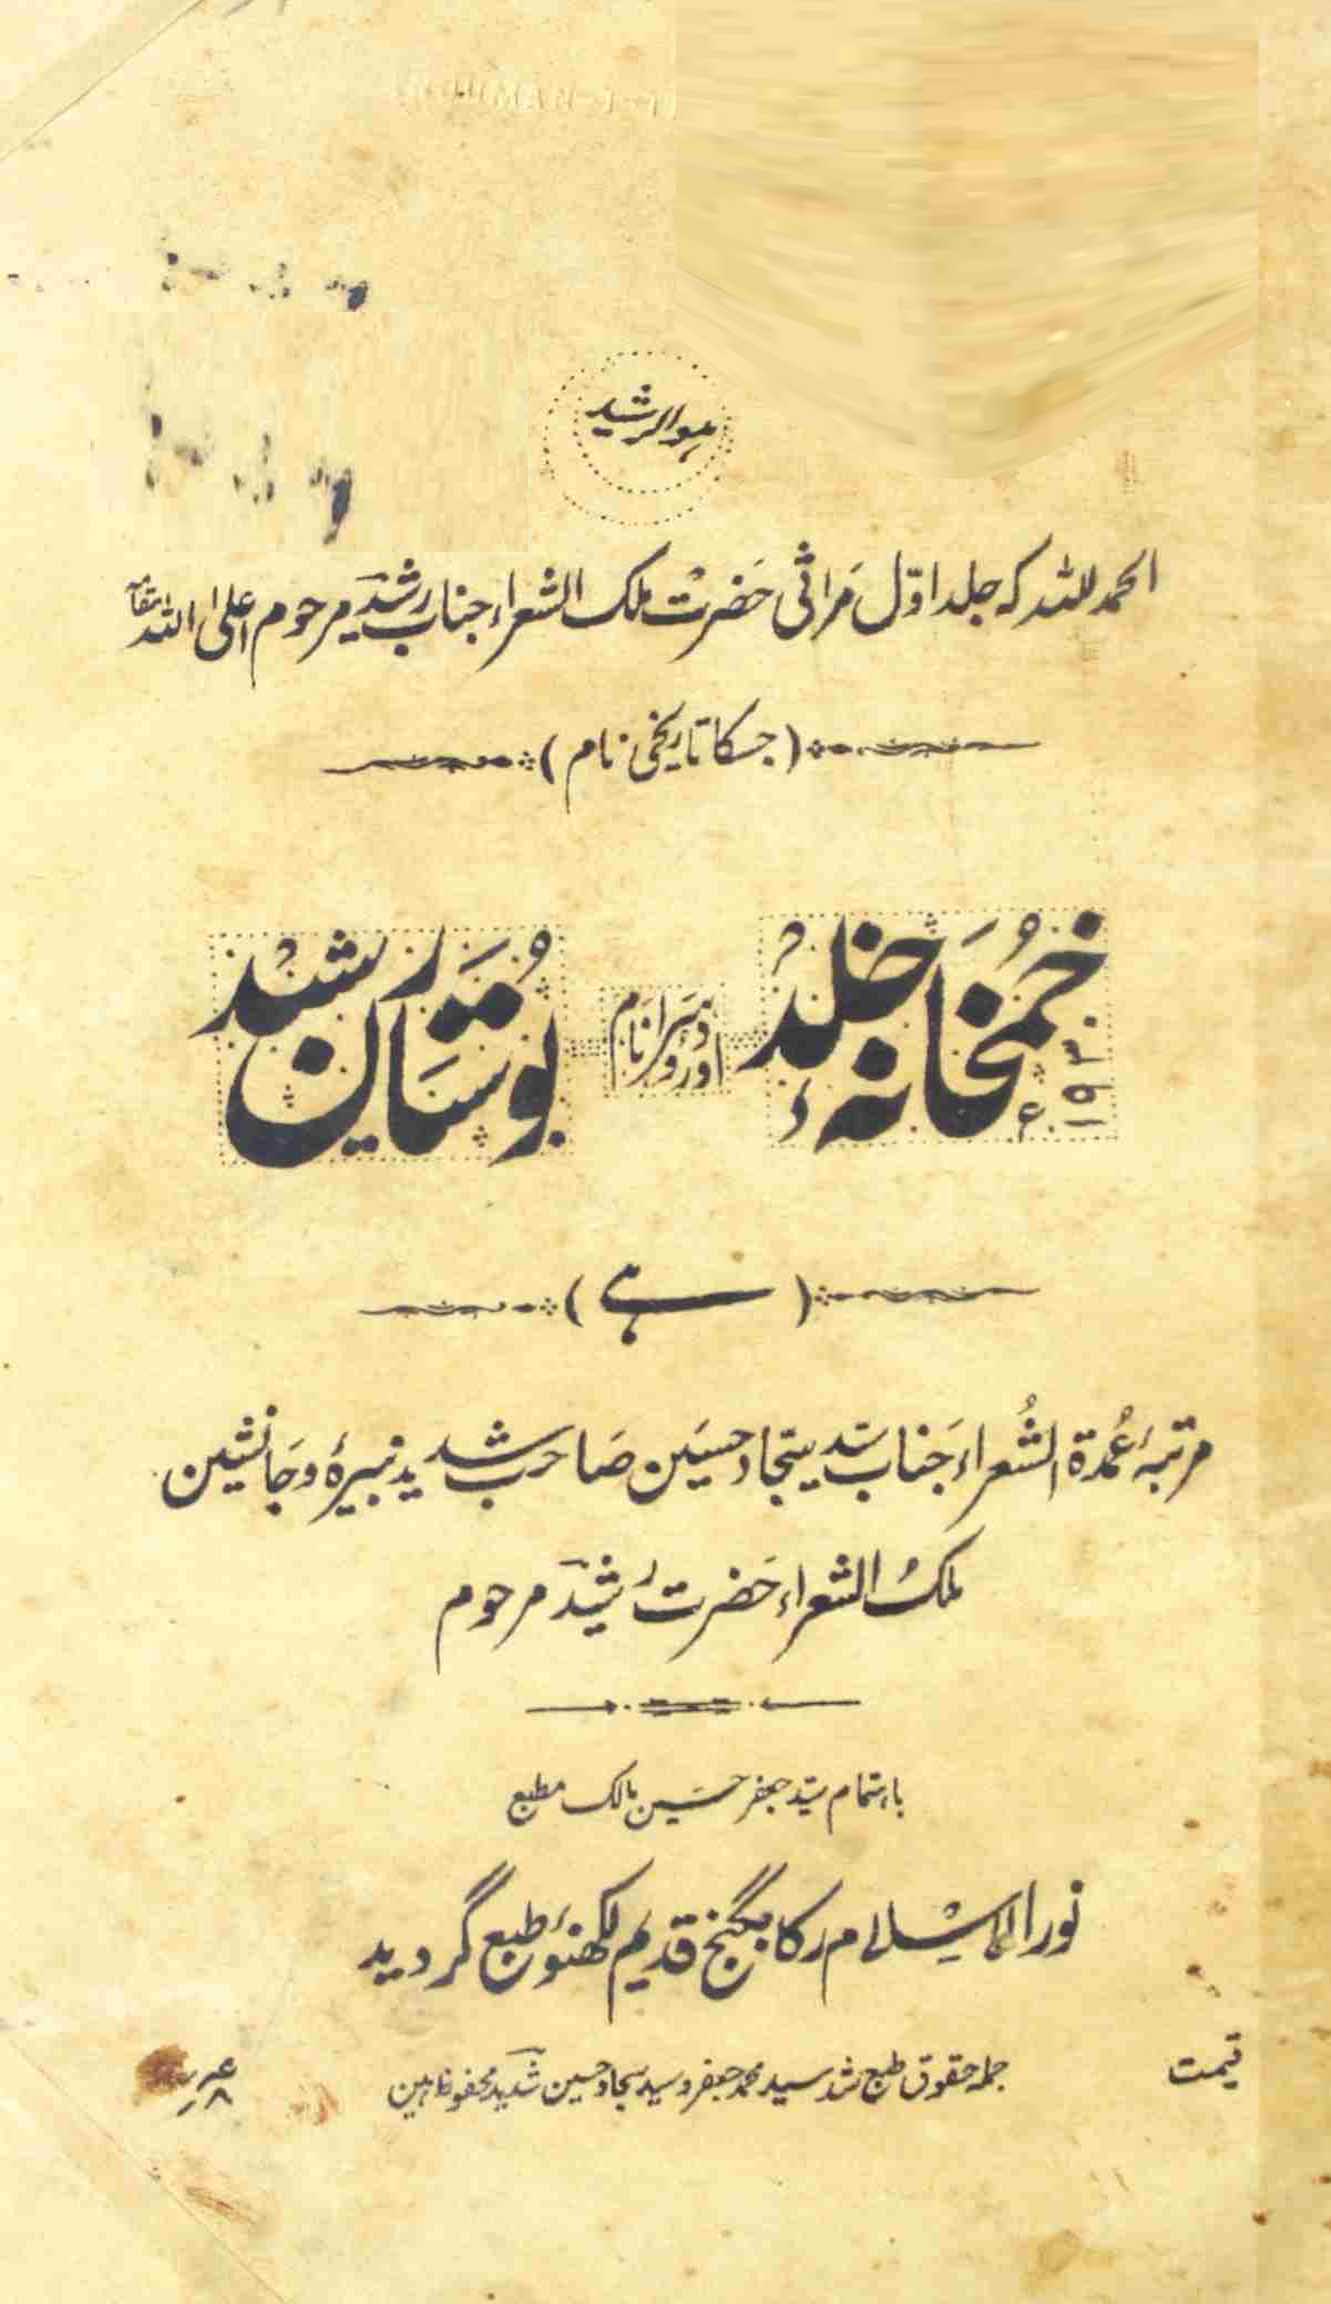 ہوالرشید
الحمد للہ کہ جلد اوّل مَراثی حَضرتْ ملک الشعراء جناب رشید مرحوم اعلی اللہ مقامہٗ
(جسکا تاریخی نام)
خُمخَانہٴ خُلدْ
۱۹۳۰ء
اور دوسرا نام
بُوستَان رَشیْد
(ہے)
مرتبہٴ عُمدۃ الشُعراء جَناب سید سجاد حسیَن صَاحب شدید نبیرۂ و جَانشین
ملکُ الشعراء حَضرت رشید مرحوم
باہتمام سید جعفر حسَین مالک مطبع
نورالاِسْلام رکابگنج قدیم لکھنؤ طبع گردید
قیمت
جملہ حقوق طبع شد سید محمد جعفر و سید سجاد حسین شدید محفوظ ہین